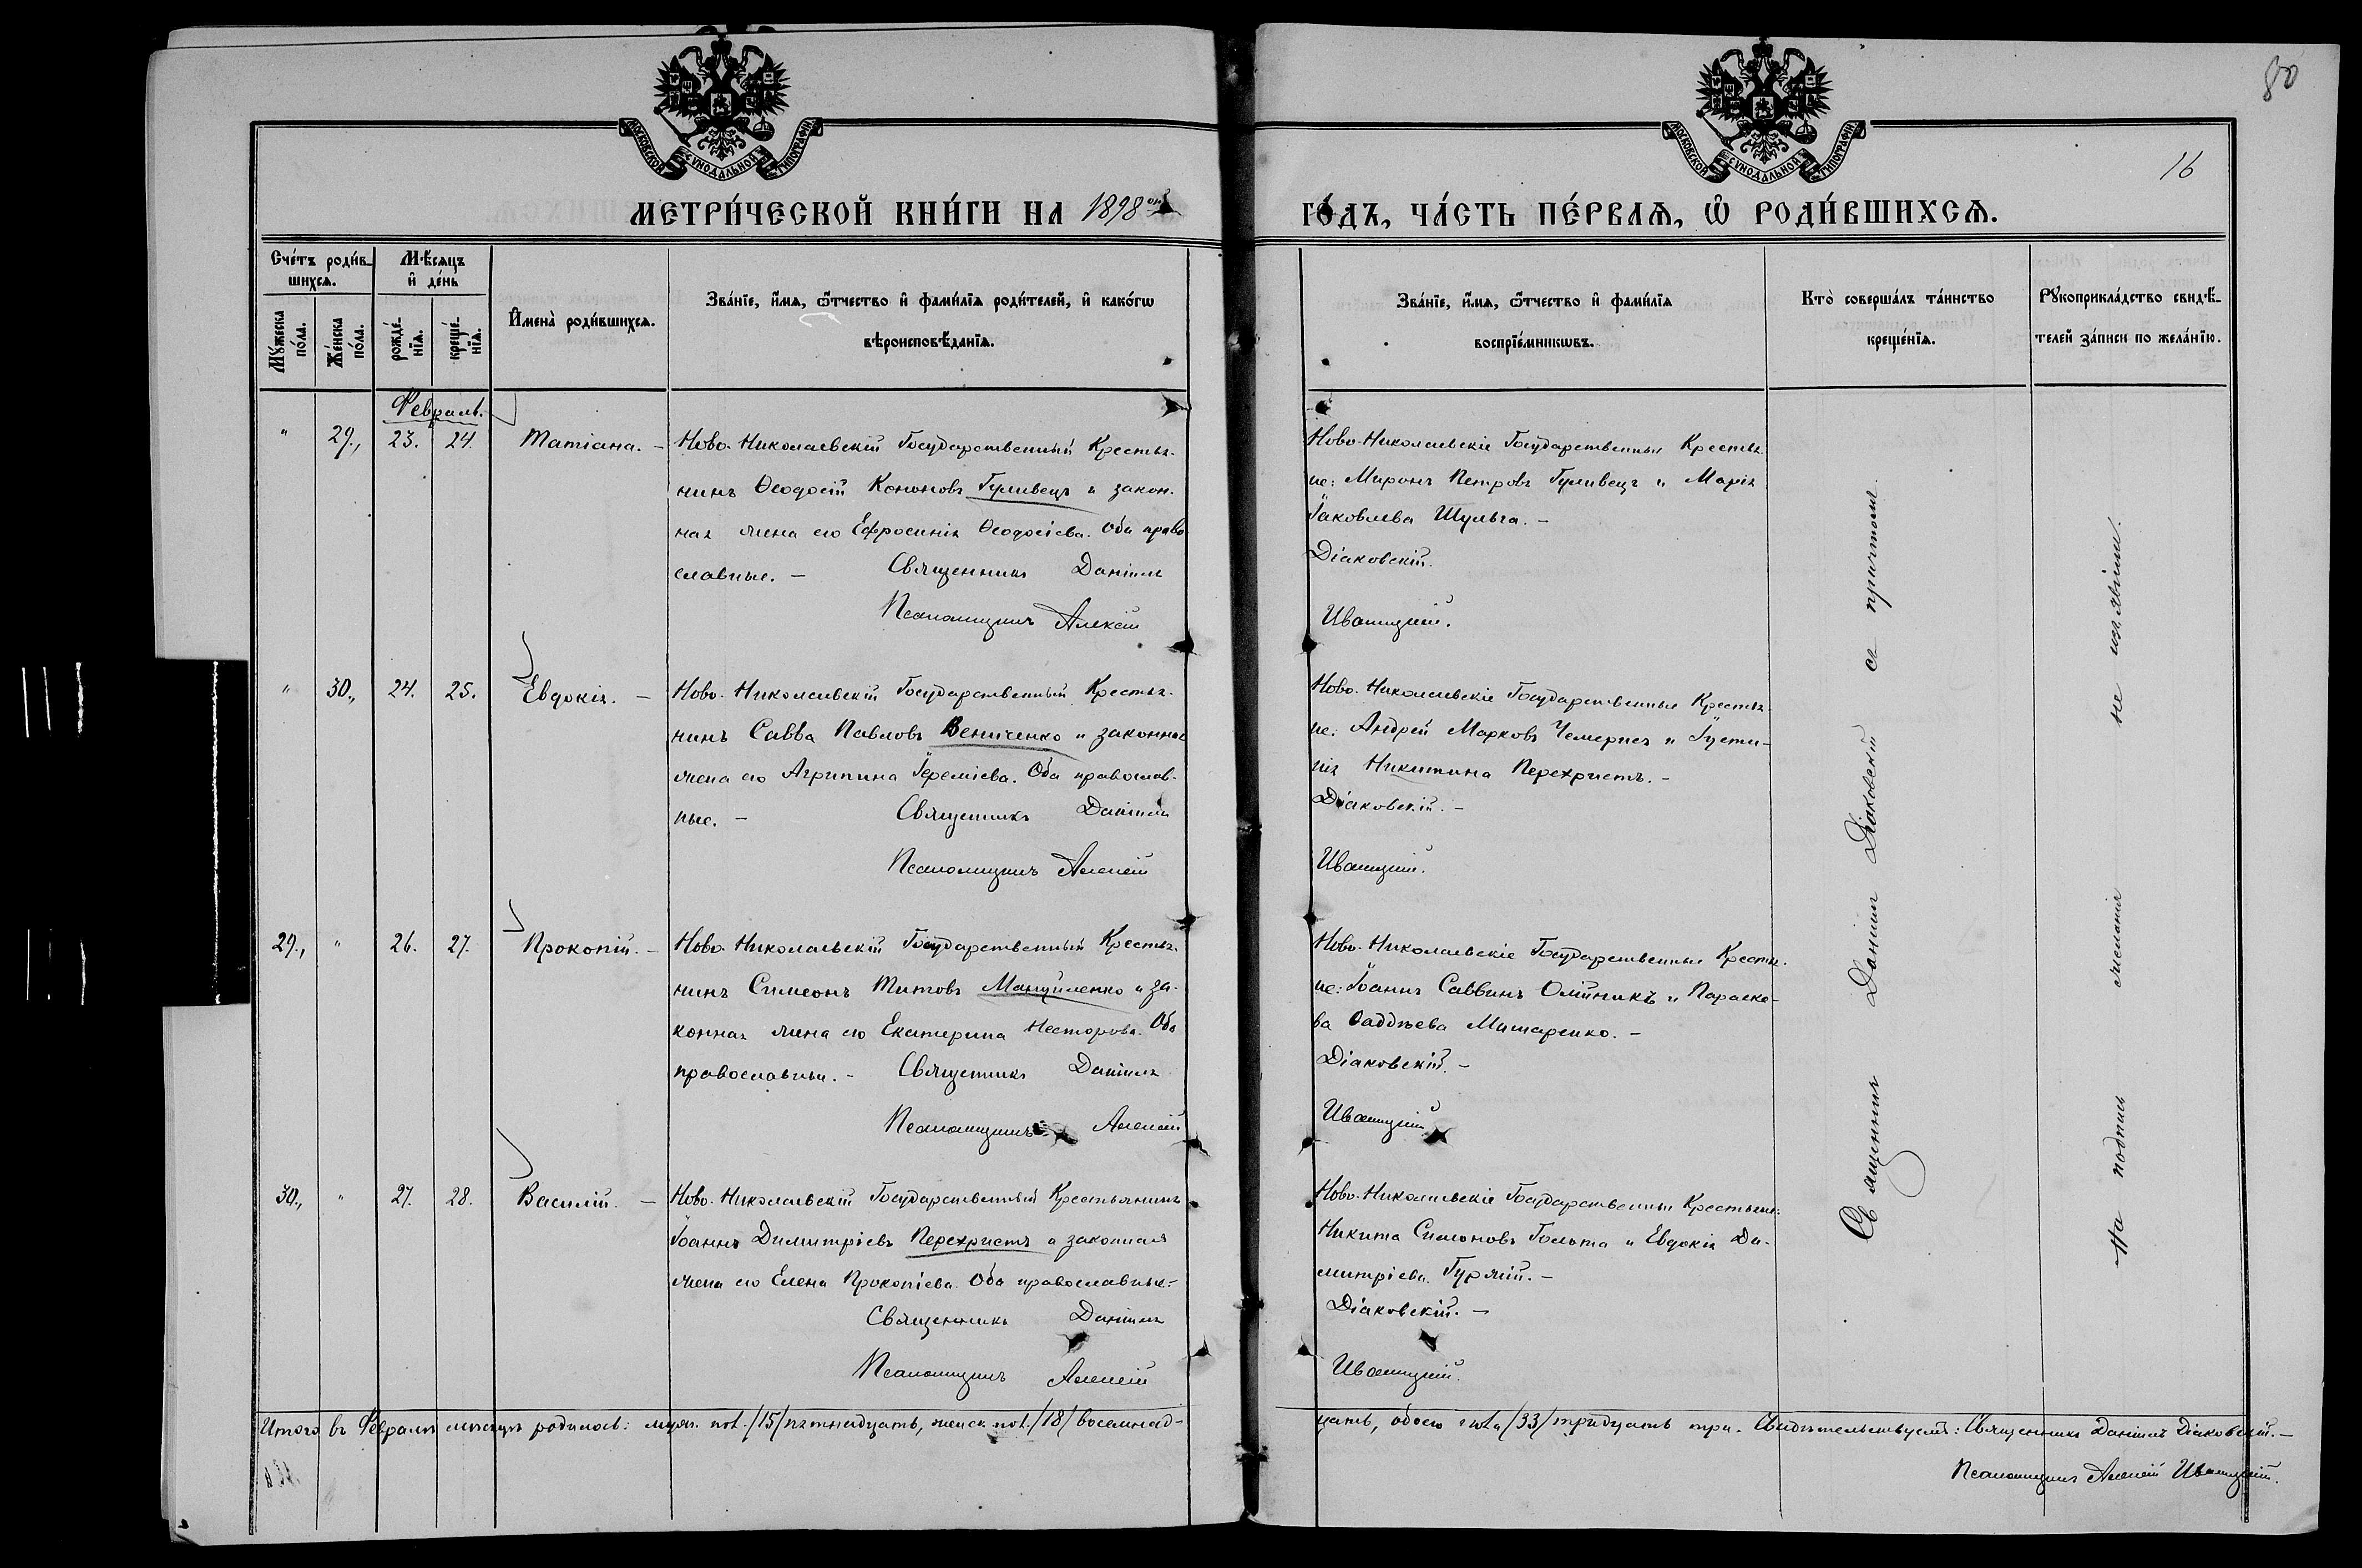 80
16
МОСКОВСКОЙ СУНОДАЛЬНОЙ ТИПОГРАФІИ
МОСКОВСКОЙ СУНОДАЛЬНОЙ ТИПОГРАФІИ
МЕТРИ́ЧЕСКОЙ КНИ́ГИ НА 1898ой
ГО́ДЪ, ЧА́СТЬ ПЕ́РВАѦ, Ѡ҆ РОДИ́ВШИХСѦ.
Сче́тъ роди́в-
шихсѧ.
Мѣ́сяцъ
и҆ де́нь
Мꙋ́жеска по́ла.
Же́нска по́ла.
рожде́-
нїѧ.
креще́-
нїѧ.
И҆мена̀ роди́вшихсѧ.
Зва́нїе, и҆́мѧ, ѻ҆́тчество и҆ фами́лїѧ роди́телей, и҆ како́гѡ
вѣроисповѣ́данїѧ.
Зва́нїе, и҆́мѧ, ѻ҆́тчество и҆ фами́лїѧ
воспрїе́мникѡвъ.
Кто̀ соверша́лъ та́инство
креще́нїѧ.
Рꙋкоприкла́дство свидѣ́-
телей за́писи по жела́нїю.
Февраль.
" 29., 23. 24. Татіана. –
Ново-Николаевскій Государственный Крестья-
нинъ Ѳеодосій Кононовъ Гуливецъ и закон-
ная жена его Ефросинія Ѳеодосіева. Оба право
славные. – Священникъ Даніилъ
Псаломщикъ Алексій
Ново-Николаевскіе Государственные Крестья-
не: Миронъ Петровъ Гуливецъ и Марія
Іаковлева Шульга. –
Діаковскій.
Иваницкій.
" 30., 24. 25. Евдокія. –
Ново-Николаевскій Государственный Крестья-
нинъ Савва Павловъ Вениченко и законная
жена его Агрипина Іереміева. Оба православ-
ные. – Священникъ Даніилъ
Псаломщикъ Алексій
Ново-Николаевскіе Государственные Крестья-
не: Андрей Марковъ Чемерисъ и Іусти-
нія Никитина Перехристъ. –
Діаковскій. –
Иваницкій.
29., " 26. 27. Прокопій. –
Ново-Николаевскій Государственный Крестья-
нинъ Симеонъ Титовъ Мануйленко и за-
конная жена его Екатерина Несторова. Оба
православные. – Священникъ Даніилъ
Псаломщикъ Алексій
Ново-Николаевскіе Государственные Крестья-
не: Іоаннъ Саввинъ Олійникъ и Параске-
ва Ѳаддѣева –
Діаковскій. –
Иваницкій
30., " 27. 28. Василій. –
Ново-Николаевскій Государственный Крестьянинъ
Іоаннъ Димитріевъ Перехристъ и законная
жена его Елена Прокопіева. Оба православные. –
Священникъ Даніилъ
Псаломщикъ Алексій
Ново-Николаевскіе Государственные Крестьяне:
Никита Симоновъ Гольта и Евдокія Ди-
митріева Гуржій. –
Діаковскій. –
Иваницкій.
Священникъ Даніилъ Діаковскій съ причтомъ.
На подпись желанія не изъявили.
Итого въ Февралѣ мѣсяцѣ родилось: муж. пол. /15/ пятнадцать, женск. пол. /18/ восемнад-
цать, обоего пола /33/ тридцать три. Свидѣтельствуемъ: Священникъ Даніилъ Діаковскій. –
Псаломщикъ Алексій Иваницкій.